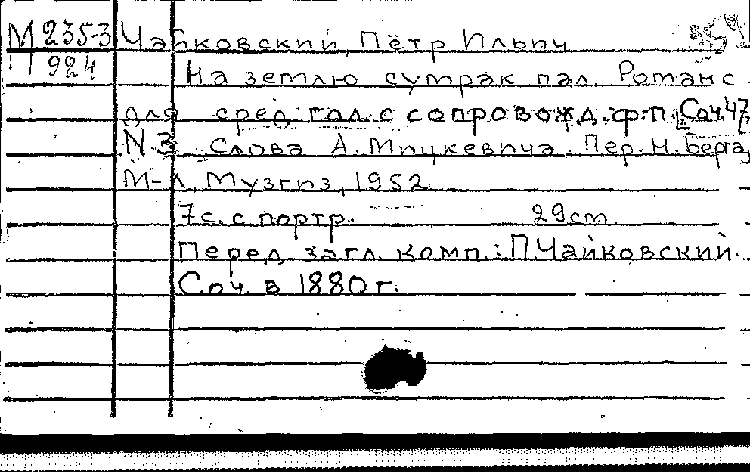 М 235-3 Чайковский, Пётр Ильич
П 924
На землю сумрак пал. Романс
для сред. гол. с сопровожд. ф-п. Соч. 47,
N 3. Слова А. Мицкевича. Пер. Н. Берга,
М-Л, Музгиз, 1952
7с. с портр. 29см.
Перед загл. комп.: П. Чайковский.
Соч. в 1880 г.